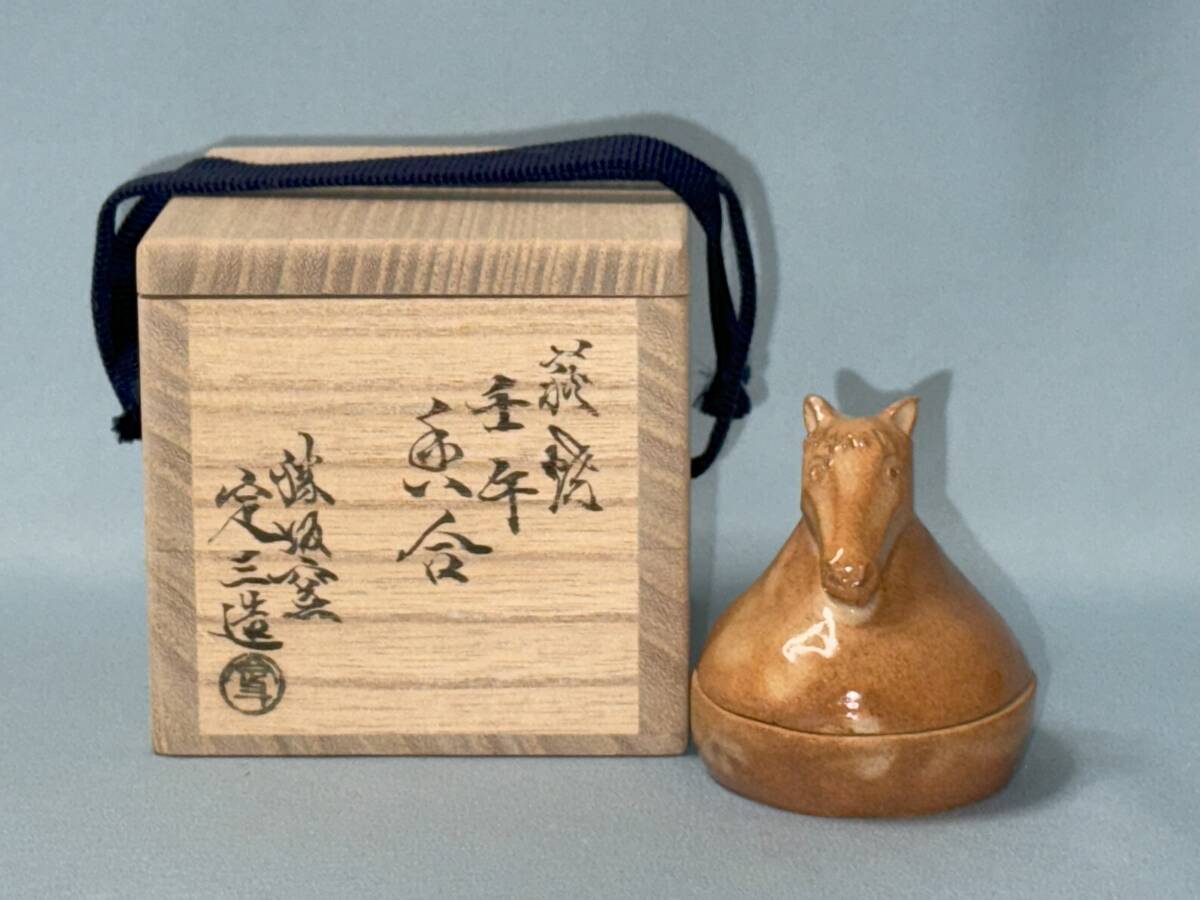 萩焼
壬午
香合
勝坂窯
定三造